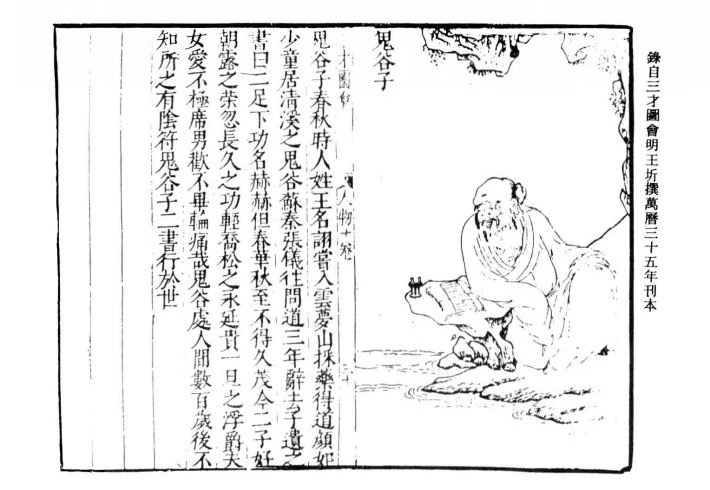 錄自三才圖會明王圻撰萬曆三十五年刊本
鬼谷子
才圖會
人物十卷
鬼谷子春秋時人姓王名詡嘗入雲夢山採藥得道顏如
少童居清溪之鬼谷蘇秦張儀往問道三年辭去子遺之
書曰二足下功名赫赫但春華秋至不得久茂今二子好
朝露之荣忽長久之功輕喬松之永延貴一旦之浮爵夫
女愛不極席男歡不畢輪痛哉鬼谷處人間數百歲後不
知所之有陰符鬼谷子二書行於世